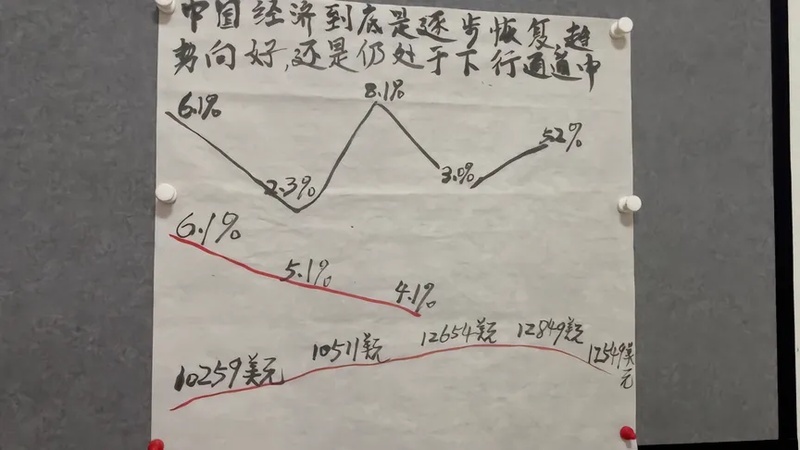 中国经济到底是逐步恢复,趋
势向好,还是仍处于下行通道中
8.1%
6.1%
52%
2.3%
3.0%
6.1%
5.1%
4.1%
10259美元
10511美元
12654美元
12849美元
12549美
元